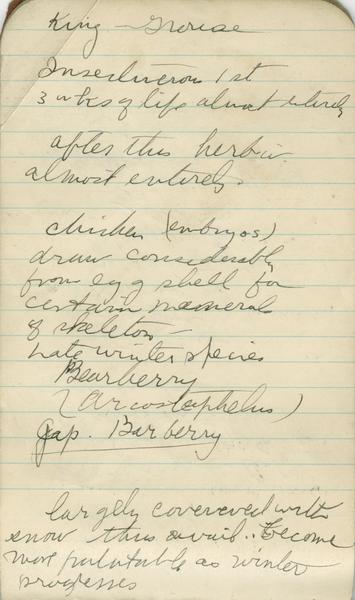 King - Grouse
Insectiverous 1st
3 wks of life almost entirely
after this herbiv.
almost entirely.
chicken (embryos)
draw considerably
from egg shell for
certain minerals
of skeleton -
Late winter species
Bearberry
(Arcostaphelus)
Jap. Barberry
largely covereved with
snow thus avail.. Become
more palatable as winter
progresses